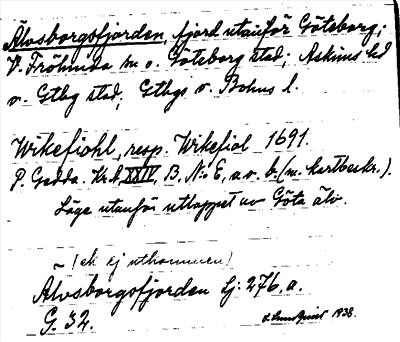 Älvsborgsfjorden, fjord utanför Göteborg;
V. Frölunda sn o. Göteborg stad; Askims hd
o. Gtbg stad; Gtbgs o. Bohus l.
Wikefiohl, resp. Wikefiol 1691.
P. Gedda. Krt XXIV, B. N:o E, a.o. b. (m. kartbeskr.).
Läge utanför utloppet av Göta älv.
(ek ej utkommen)
~ Älvsborgsfjorden Lj: 276, a.
G. 32.
1938.